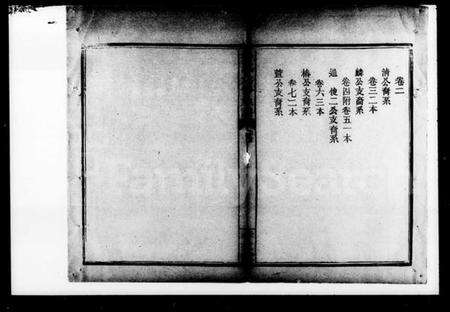 卷二
清公裔系
卷三二本
鱗公支裔系
卷四附卷五一本
二公支裔系
卷六三本
橋公支裔系
卷七二本
公支裔系
FamilySearch